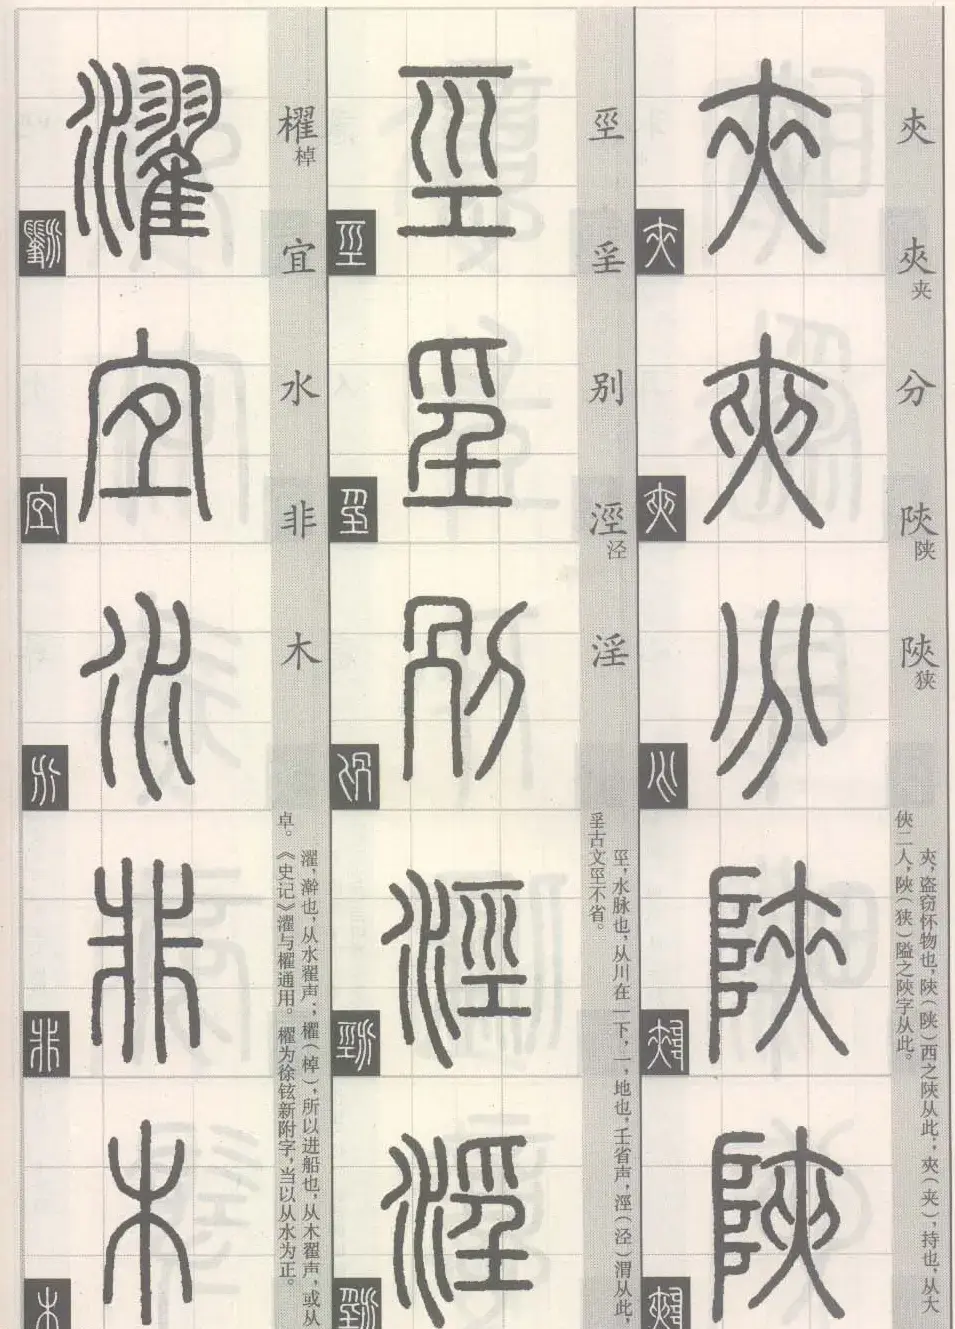 㚒
夾夹
分
陝陕
陜狭
㚒，盗窃怀物也，陝（陕）西之陝从此；夾（夹），持也，从大
俠二人，陜（狭）隘之陜字从此。
坙
㸒
别
涇泾
淫
坙，水脉也，从川在一下，一，地也，壬省声，涇（泾）渭从此，
㸒古文坙不省。
櫂棹
宜
水
非
木
濯，澣也，从水翟声；櫂（棹），所以进船也，从木翟声，或从
卓。《史记》濯与櫂通用。櫂为徐铉新附字，当以从水为正。